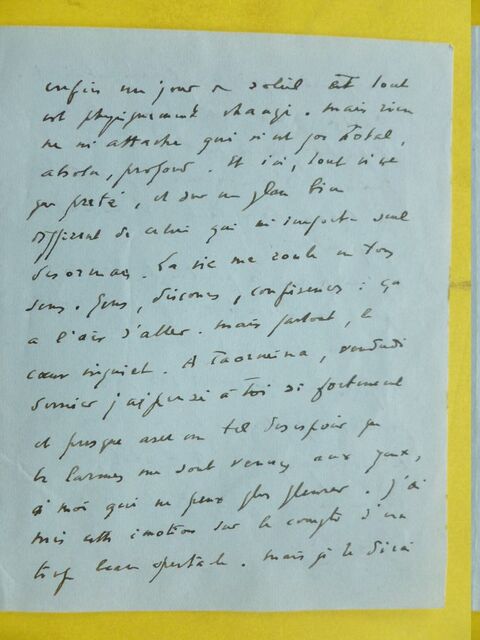 enfin un jour de soleil et tout
est physiquement changé. Mais rien
ne m'attache qui n'est pas total,
absolu, profond. Et ici, tout n'est
que prêté, et sur un plan bien
différent de celui qui m'importe seul
désormais. La vie me roule en tous
sens. Gens, discours, conférences : ça
a l'air d'aller. Mais partout, le
cœur inquiet. A Taormina, vendredi
dernier j'ai pensé à toi si fortement
et presque avec un tel désespoir que
les larmes me sont venues aux yeux,
à moi qui ne peux plus pleurer. J'ai
mis cette émotion sur le compte d'un
trop beau spectacle. Mais je te dirai